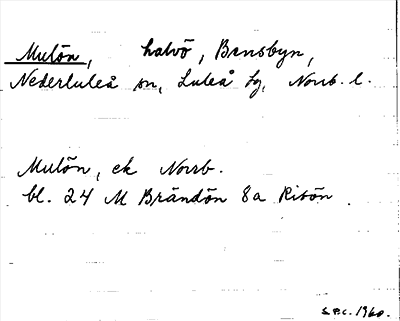 Mulön, halvö, Bensbyn,
Nederluleå sn, Luleå tg, Norrb. l.
Mulön, ek Norrb.
bl. 24 M Brändön 8a Ritön
S.P.C. 1960.